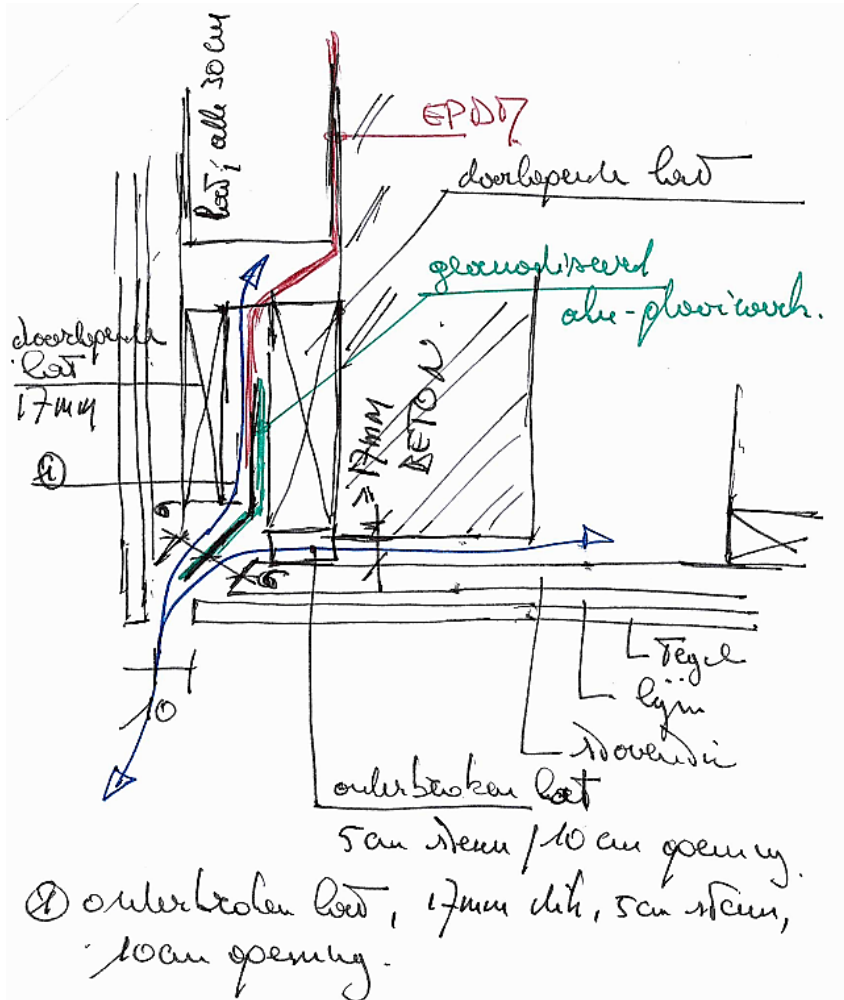 hout; alle 30 cm
EPDM
doorlopende lat
geanodiseerd
alu-plooiwerk.
doorlopende
lat
17mm
≥17mm
BETON
①
6
6
10
Tegel
lijm
onderbroken lat
5cm steun / 10 cm opening.
① onderbroken lat, 17mm dik, 5cm steun,
10cm opening.